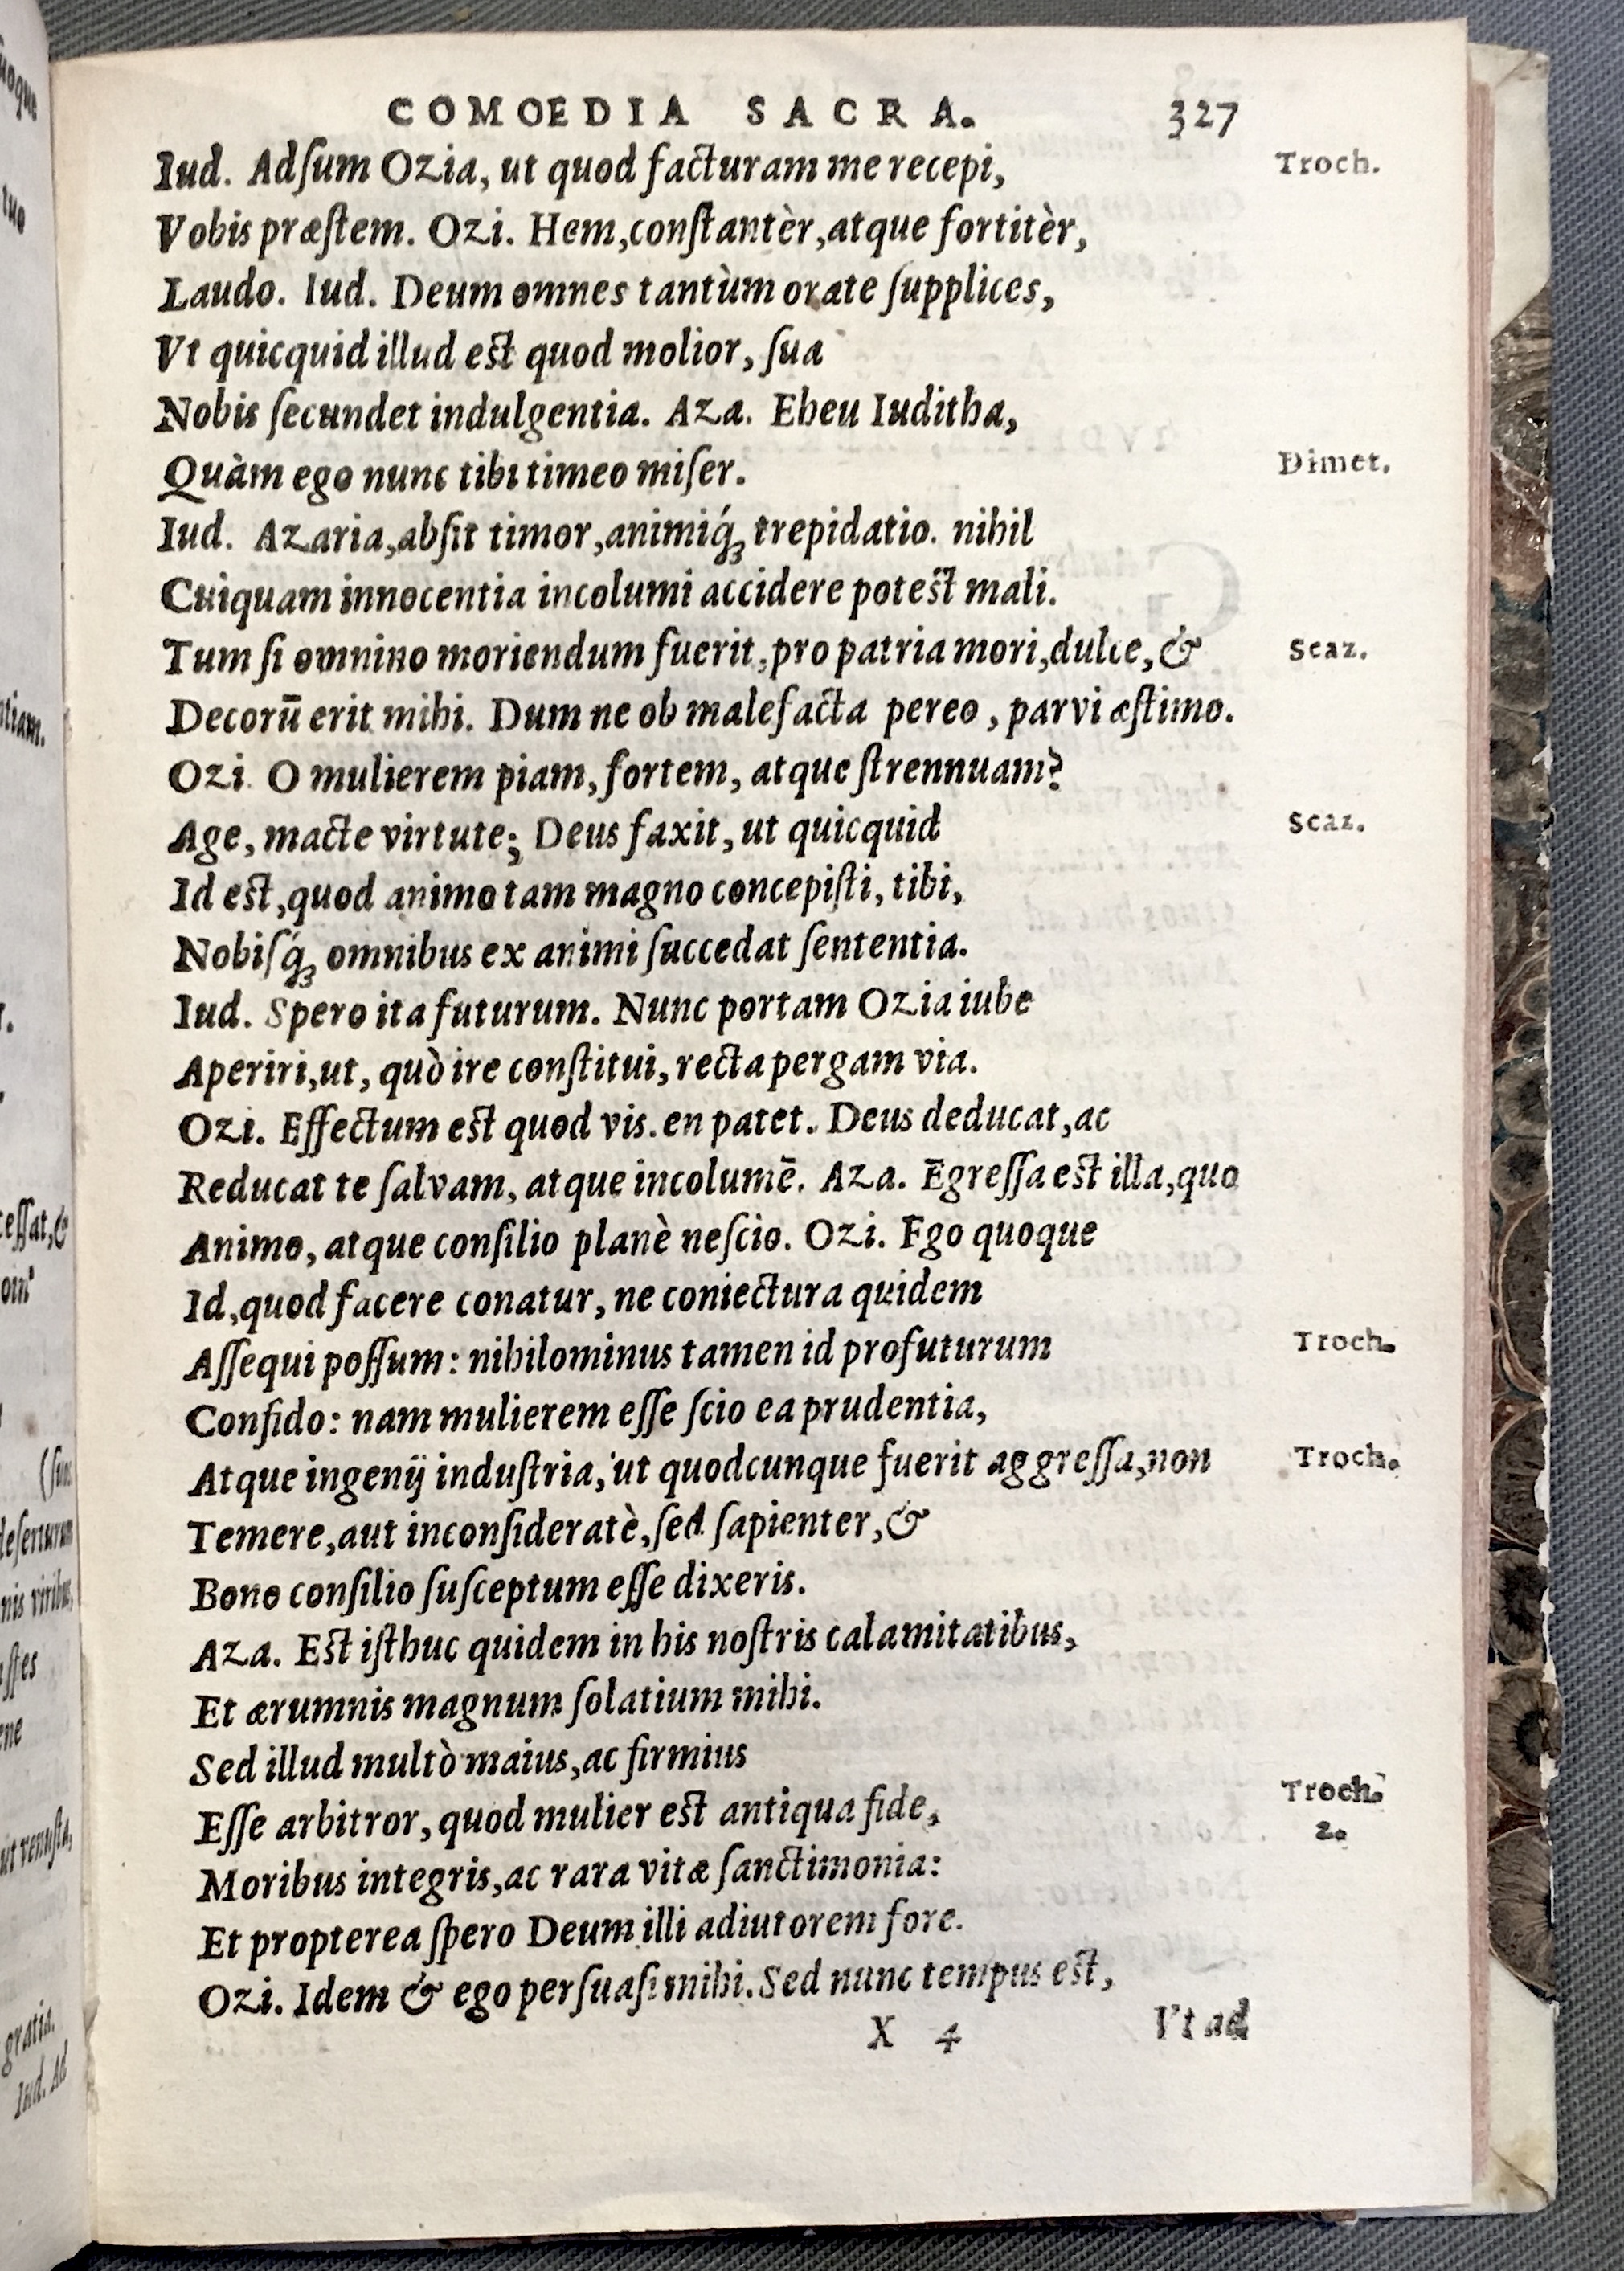 COMOEDIA SACRA. 327
Iud. Adſum Ozia, ut quod facturam me recepi, Troch.
Vobis præſtem. Ozi. Hem, conſtantèr, atque fortitèr,
Laudo. Iud. Deum omnes tantùm orate ſupplices,
Vt quicquid illud est quod molior, ſua
Nobis ſecundet indulgentia. Aza. Eheu Iuditha,
Quàm ego nunc tibi timeo miſer. Dimet.
Iud. Azaria, abſit timor, animiq́ꝫ trepidatio. nihil
Cuiquam innocentia incolumi accidere potest mali.
Tum ſi omnino moriendum fuerit, pro patria mori, dulce, & Scaz.
Decorū erit mihi. Dum ne ob malefacta pereo, parvi æſtimo.
Ozi. O mulierem piam, fortem, atque ſtrennuam?
Age, macte virtute; Deus faxit, ut quicquid Scaz.
Id est, quod animo tam magno concepiſti, tibi,
Nobiſq́ꝫ omnibus ex animi ſuccedat ſententia.
Iud. Spero ita futurum. Nunc portam Ozia iube
Aperiri, ut, quò ire conſtitui, recta pergam via.
Ozi. Effectum est quod vis. en patet. Deus deducat, ac
Reducat te ſalvam, atque incolumē. Aza. Egreſſa est illa, quo
Animo, atque conſilio planè neſcio. Ozi. Ego quoque
Id, quod facere conatur, ne coniectura quidem
Aſſequi poſſum: nihilominus tamen id profuturum Troch.
Confido: nam mulierem eſſe ſcio ea prudentia,
Atque ingenij induſtria, ut quodcunque fuerit aggreſſa, non Troch.
Temere, aut inconſideratè, ſed ſapienter, &
Bono conſilio ſuſceptum eſſe dixeris.
Aza. Est iſthuc quidem in his noſtris calamitatibus,
Et ærumnis magnum ſolatium mihi.
Sed illud multò maius, ac firmius
Eſſe arbitror, quod mulier est antiqua fide, Troch. 2.
Moribus integris, ac rara vitæ ſanctimonia:
Et propterea ſpero Deum illi adiutorem fore.
Ozi. Idem & ego perſuaſi mihi. Sed nunc tempus est,
X 4 Vt ad